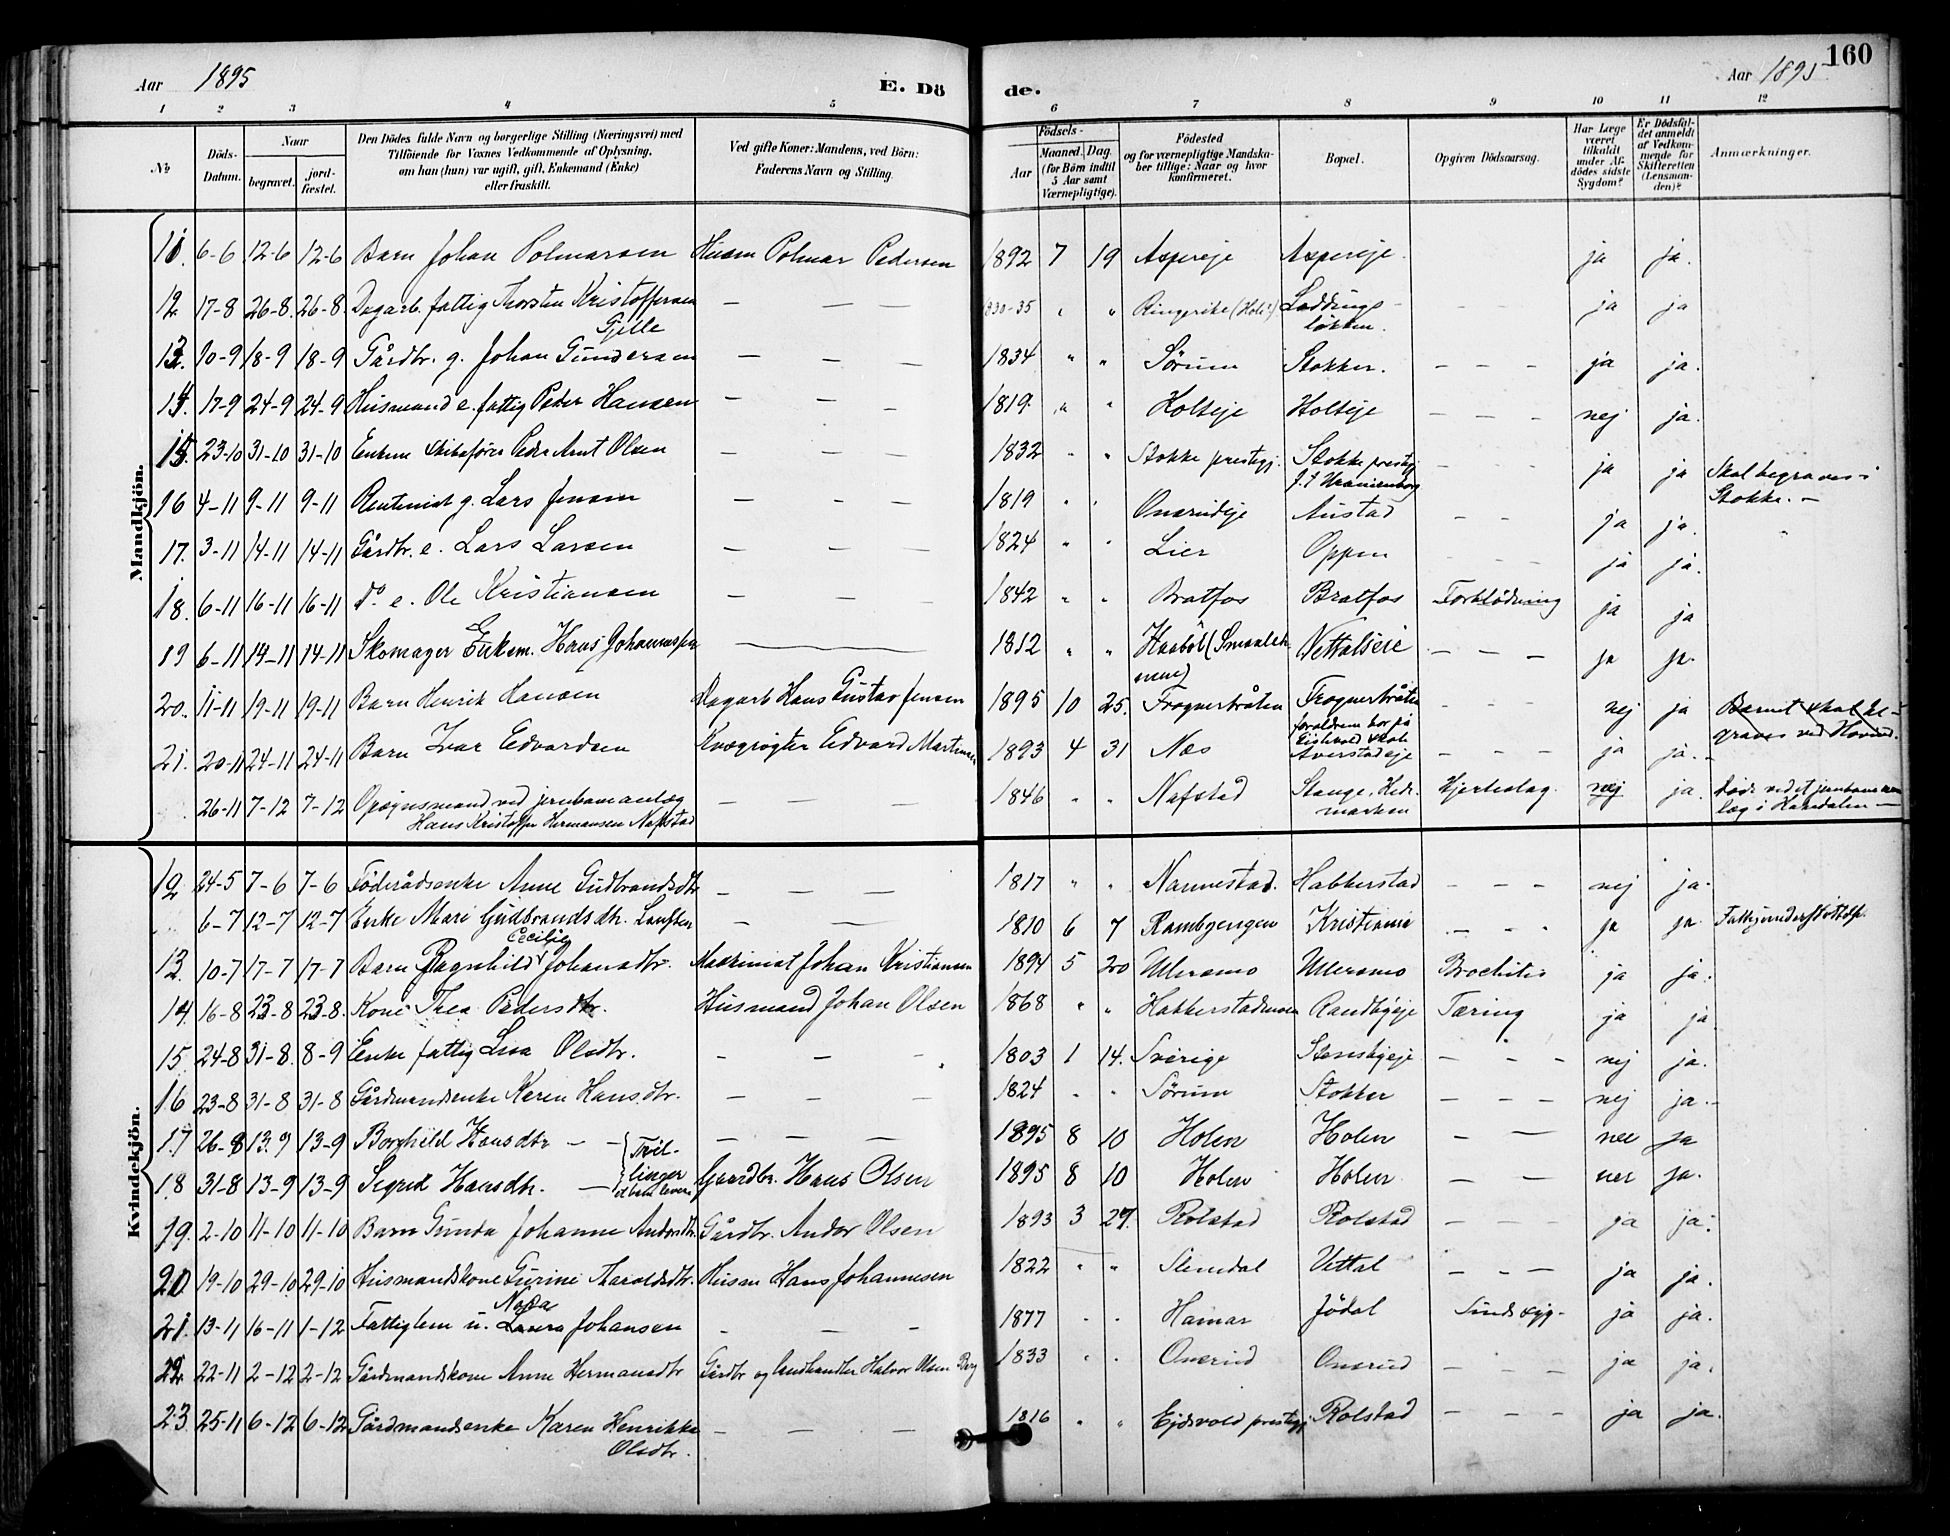 160
Aar 1895 E. Dö de. Aar 1895
1 2 3 4 5 6 7 8 9 10 11 12
No Döds-Datum. Naar begravet. jord-fæstet. Den Dödes fulde Navn og borgerlige Stilling (Næringsvei) med Tilföiende for Voxnes Vedkommende af Oplysning, om han (hun) var ugift, gift, Enkemand (Enke) eller fraskilt. Ved gifte Koner: Mandens, ved Börn: Faderens Navn og Stilling. Födsels- Aar Maaned. Dag. (for Börn indtil 5 Aar samt Værnepligtige). Födested og for værnepligtige Mandskaber tillige: Naar og hvor konfirmeret. Bopæl. Opgiven Dödsaarsag. Har Læge været tilkaldt under Afdödes sidste Sygdom? Er Dödsfaldet anmeldt af Vedkommende for Skifteretten (Lensmanden)? Anmærkninger.
Mandkjön.
11. 6-6 12-6 12-6 Barn Johan Polmarsen Husm Polmar Pedersen 1892 7 19 Aspereje Aspereje. ja ja.
12 17-8 26-8. 26-8. Dagarb. fattig Thorsten Kristoffersen Gjelle — — — 1830-35 " " Ringerike (Hole?) Laddingsløkken. - - - ja ja
13. 10-9 18-9 18-9 Gårdbr. g. Johan Gundersen — — — 1834 " " Sørum Stokker. - - - ja ja.
14. 17-9 24-9 24-9 Husmand e. fattig Peder Hansen — — - 1819. " " Holteje Holteje — — — nej ja.
15. 23-10 31-10 31-10 Enkem Skibsfører Peder Arnt Olsen — — — 1832 " " Stokke prestegj. Stokke prestegj. f. t. Uranienborg - - - ja ja Skal begraves i Stokke. —
16 4-11 9-11 9-11 Rentenist g. Lars Jensen — — — 1819 " " Onsrudeje Austad — — ja ja.
17. 3-11 14-11 14-11 Gårdbr. e. Lars Larsen — — — 1824 " " Lier Oppen - - - ja ja.
18. 6-11 16-11 16-11 do. e. Ole Kristiansen — — — 1842 " " Bratfos Bratfos Forblødning ja ja
19 6-11 14-11 14-11 Skomager Enkem. Hans Johannessen 1812 " " Haabøl (Smaalenene) Vettalseie — — — ja ja.
20. 11-11 19-11 19-11 Barn Henrik Hansen Dagarb Hans Gustav Jensen 1895 10 25. Frognerbråten Frognerbråten forældrene bor på Eidsvold - - - nej ja Barnet skal begraves ved Hovind.
21. 20-11 24-11 24-11 Barn Ivar Edvardsen Kvægrøgter Edvard Martinsen 1893 4 31 Næs Averstadeje — — — ja ja.
26-11 7-12 7-12 Opsynsmand ved jernbaneanlæg Hans Kristoffer Hermansen Nafstad — — — 1846 " " Nafstad Stange, Hedemarken Hjerteslag. nej ja. Døde ved et jernbaneanlæg i Haredalen —
Kvindekjön.
12. 24-5 7-6 7-6 Föderådsenke Anne Gudbrandsdtr — — — 1817 " " Nannestad. Habberstad — — — nej ja.
6-7 12-7 12-7 Enke Mari Gudbrandsdtr. — — 1810 6 7 Rambyengen Kristiania — — - ja ja.
13. 10-7 17-7 17-7 Barn Ragnhild Cecilje Johansdtr. Maskinist Johan Kristiansen 1894 5 20 Ulersmo Ulersmo Brochitis ja ja.
14. 16-8 23-8 23-8. Kone Thea Pedersdtr. Husmand Johan Olsen 1868 " " Habberstadmoen Randbyeje Tæring ja ja
15 24-8 31-8. 8-9 Enke fattig Lisa Olsdtr. — — - 1803 1 14. Sverige Stensbyeje — - - nej ja.
16 23-8 31-8 31-8 Gårdmandsenke Karen Hansdtr. — — — 1824 " " Sørum Stokker — — — nej ja.
17 26-8 13.9 13-9 Borghild Hansdtr — — Tvillinger — — — 1895 8 10 Holen Holen — — nei ja
18 31-8 13-9 13-9 Sigrid Hansdtr. — Gaardbr. Hans Olsen 1895 8 10 Holen Holen — — nei ja.
19. 2-10 11-10 11-10 Barn Gunda Johanne Andorsdtr. Gårdbr. Andor Olsen 1893 3 27. Rolstad Rolstad — — — ja ja.
20 19-10 29-10 29-10 Husmandskone Gurine Haroldsdtr. Husm Hans Johannesen 1822 " " Slemdal Vettal — — — ja ja.
21. 13-11 16-11 1-12 Fattiglem u. Laura Nora Johansen - — - 1877 " " Hamar Jødal Sindssyg- ja ja.
22. 22-11 2-12 2-12 Gårdmandskone Anne Hermansdtr Gårdbr og landhandler Halvor Olsen Berg 1833 " " Onsrud Onsrud — — — ja ja.
23 25-11 6-12 6-12 Gårdmandsenke Karen Henrikke Olsdtr. — — — 1816 " " Ejdsvold prestegj. Rolstad — — — ja ja.